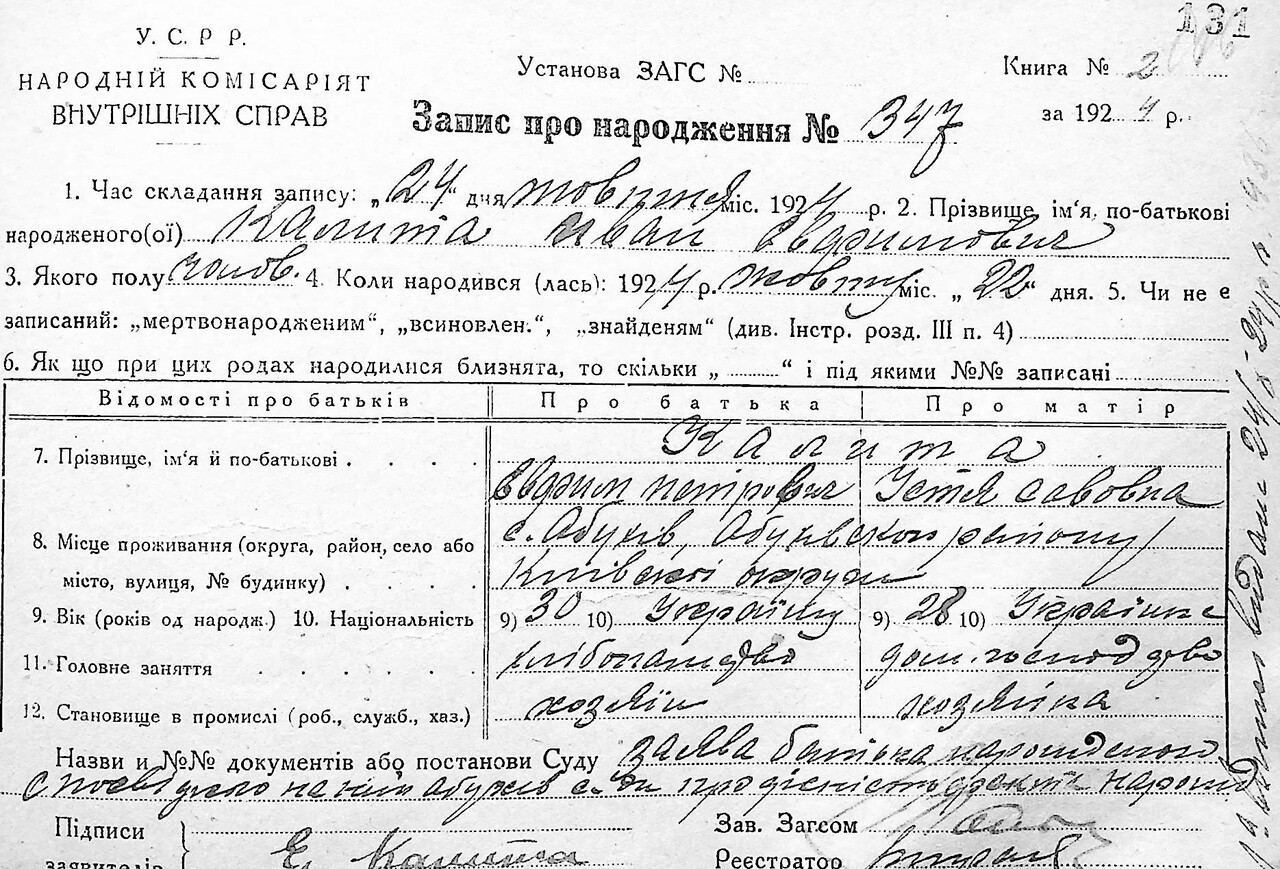 131
У. С. Р Р.
НАРОДНІЙ КОМІСАРІЯТ
ВНУТРІШНІХ СПРАВ
Установа ЗАГС №
Книга № 2
за 1924 р.
Запис про народження № 347
1. Час складання запису: „24“ дня жовтня міс. 1924 р. 2. Прізвище, ім‘я, по-батькові
народженого(ої) Калита Иван Евдимович
3. Якого полу чолов. 4. Коли народився (лась): 1924 р. жовтн міс. „22“ дня. 5. Чи не є
записаний: „мертвонародженим“, „всиновлен.“, „знайденям“ (див. Інстр. розд. III п. 4)
6. Як що при цих родах народилися близнята, то скільки „ “ і під якими №№ записані
Відомості про батьків Про батька Про матір
7. Прізвище, ім‘я й по-батькові . . . . Калита
Евдим петрович Устя савовна
8. Місце проживання (округа, район, село або с. Абухів, Абухівского району
місто, вулиця, № будинку) . . . . Київскої округи
9. Вік (років од народж.) 10. Національність 9) 30 10) Українц 9) 28 10) Українк
11. Головне заняття . . . . . хлібопашдво дом. господдво
12. Становище в промислі (роб., служб., хаз.) хозяїн хозяйка
Назви и №№ документів або постанови Суду заява батька народженого
Підписи
заявителів
Е. Калита
Зав. Загсом
Реєстратор